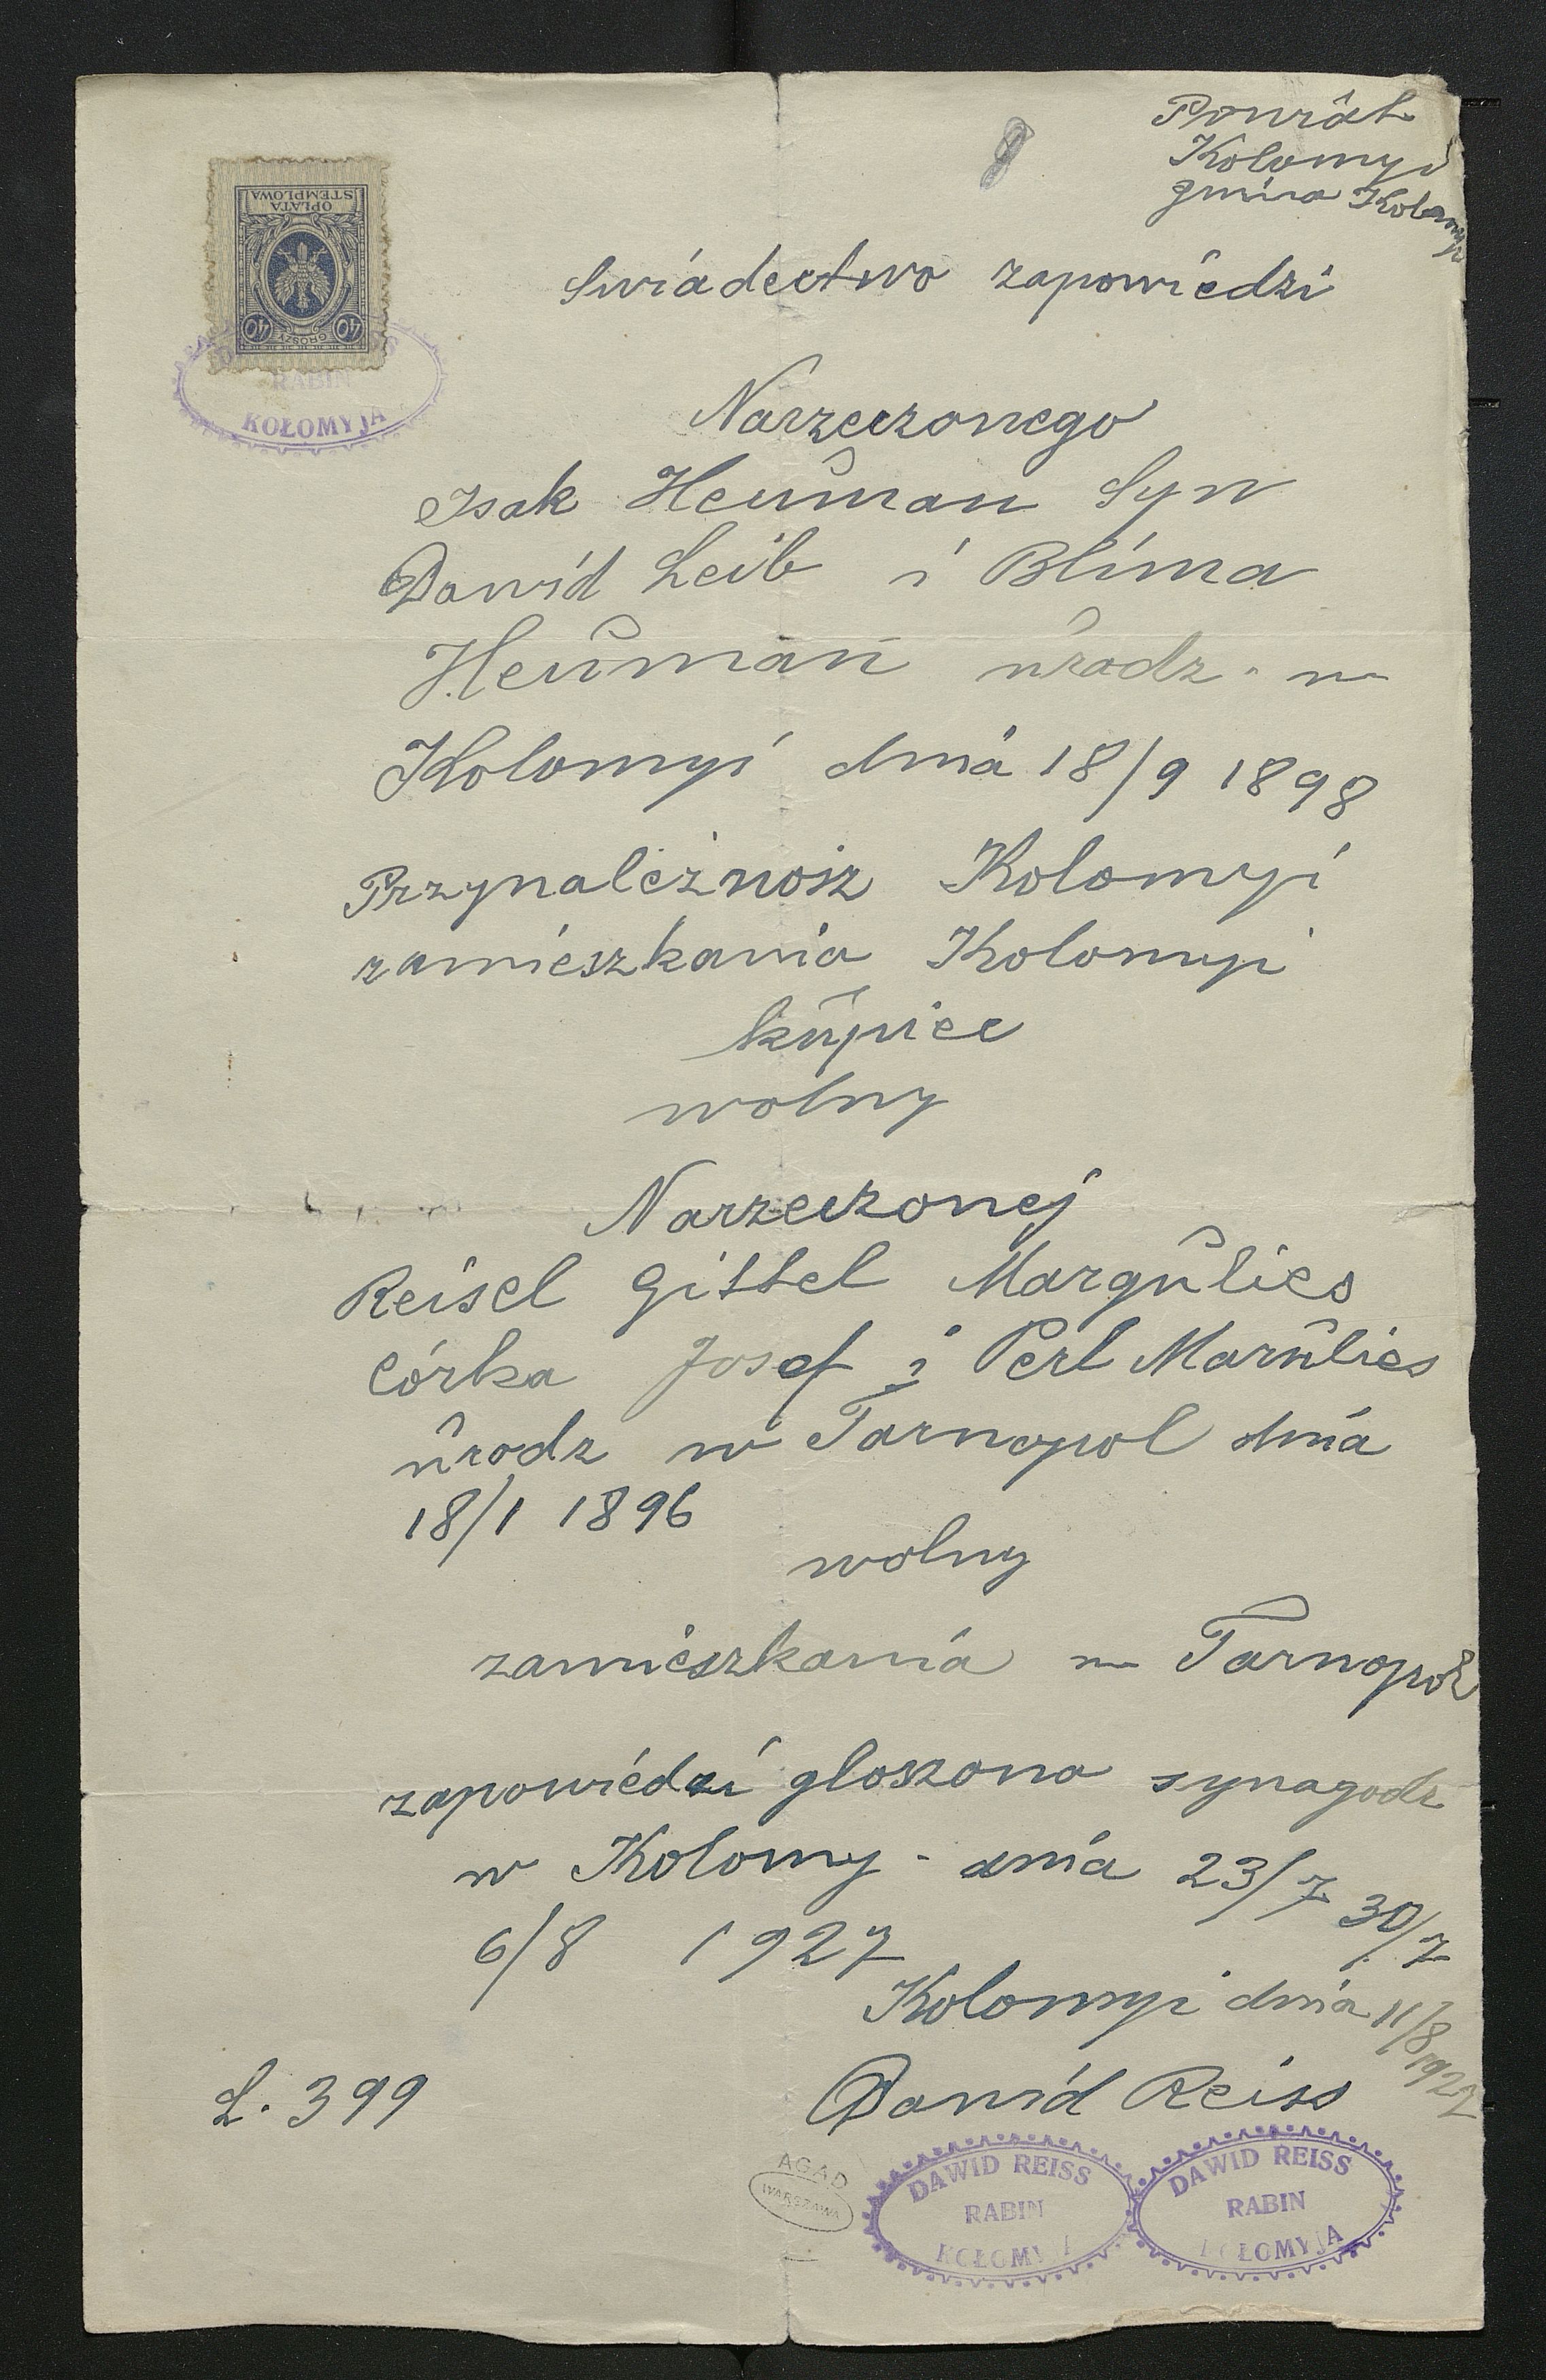 Powiat
Kolomyi
gmina Kolomyi
8
OPŁATA
STEMPLOWA
40 GROSZY 40
RABIN
KOŁOMYJA
Swiadectwo zapowiedzi
Narzeczonego
Isak Heuman Syn
Dawid Leib i Blima
Heuman urodz. w
Kolomyi dnia 18/9 1898
Przynależnośz Kolomyi
zamieszkania Kolomyi
kupiec
wolny
Narzeczonej
Reisel Gittel Margulies
córka Josef i Perl Marulies
urodz w Tarnopol dnia
18/1 1896
wolny
zamieszkania w Tarnopol
zapowiedzi gloszona synagodz
w Kolomy - dnia 23/7 30/7
6/8 1927
Kolomyi dnia 11/8 1927
L. 399
Dawid Reiss
AGAD
WARSZAWA
DAWID REISS
RABIN
KOŁOMYJA
DAWID REISS
RABIN
KOŁOMYJA